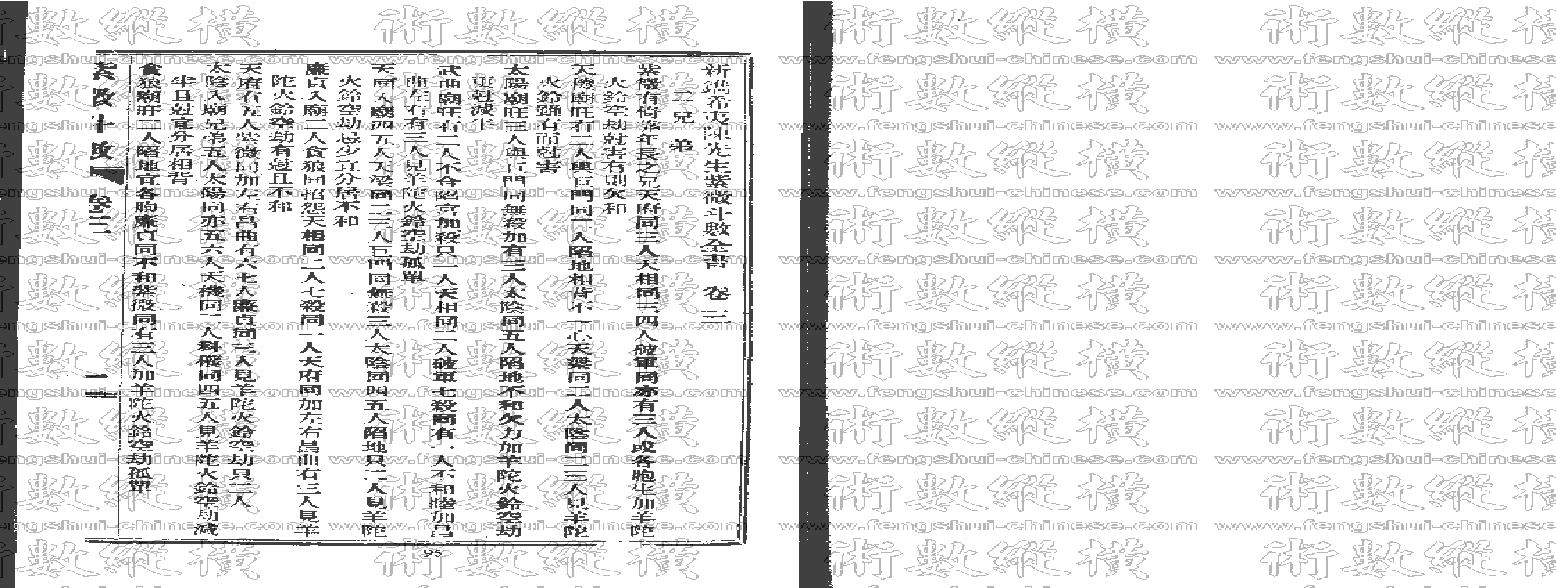 新鋟希夷陳先生紫微斗數全書 卷三
二兄弟
紫微有倚靠年長之兄天府同三人天相同三四人破軍同亦有三人或各胞生加羊陀
火鈴空劫尅害有則欠和
天機廟旺有二人與巨門同一人陷地相背不一心天梁同二人太陰同二三人見羊陀
火鈴雖有而尅害
太陽廟旺三人與巨門同無殺加有三人太陰同五人陷地不和欠力加羊陀火鈴空劫
更尅減半
武曲廟旺有二人不合陷宮加殺只一人天相同二人破軍七殺同有一人不和睦加昌
曲左右有三人見羊陀火鈴空劫孤單
天同入廟四五人天梁同二三人巨門同無殺三人太陰同四五人陷地只二人見羊陀
火鈴空劫忌少宜分居不和
廉貞入廟二人貪狼同招怨天相同二人七殺同一人天府同加左右昌曲有三人見羊
陀火鈴空劫有尅且不和
天府有五人紫微同加左右昌曲有六七人廉貞同三人見羊陀火鈴空劫只二人
太陰入廟兄弟五人太陽同亦五六人天機同二人天同四五人見羊陀火鈴空劫減
半且尅宜分居相背
貪狼廟旺二人陷地宜各胞廉貞同不和紫微同有三人加羊陀火鈴空劫孤單
卷三
二
95
術數縱橫
www.fengshui-chinese.com